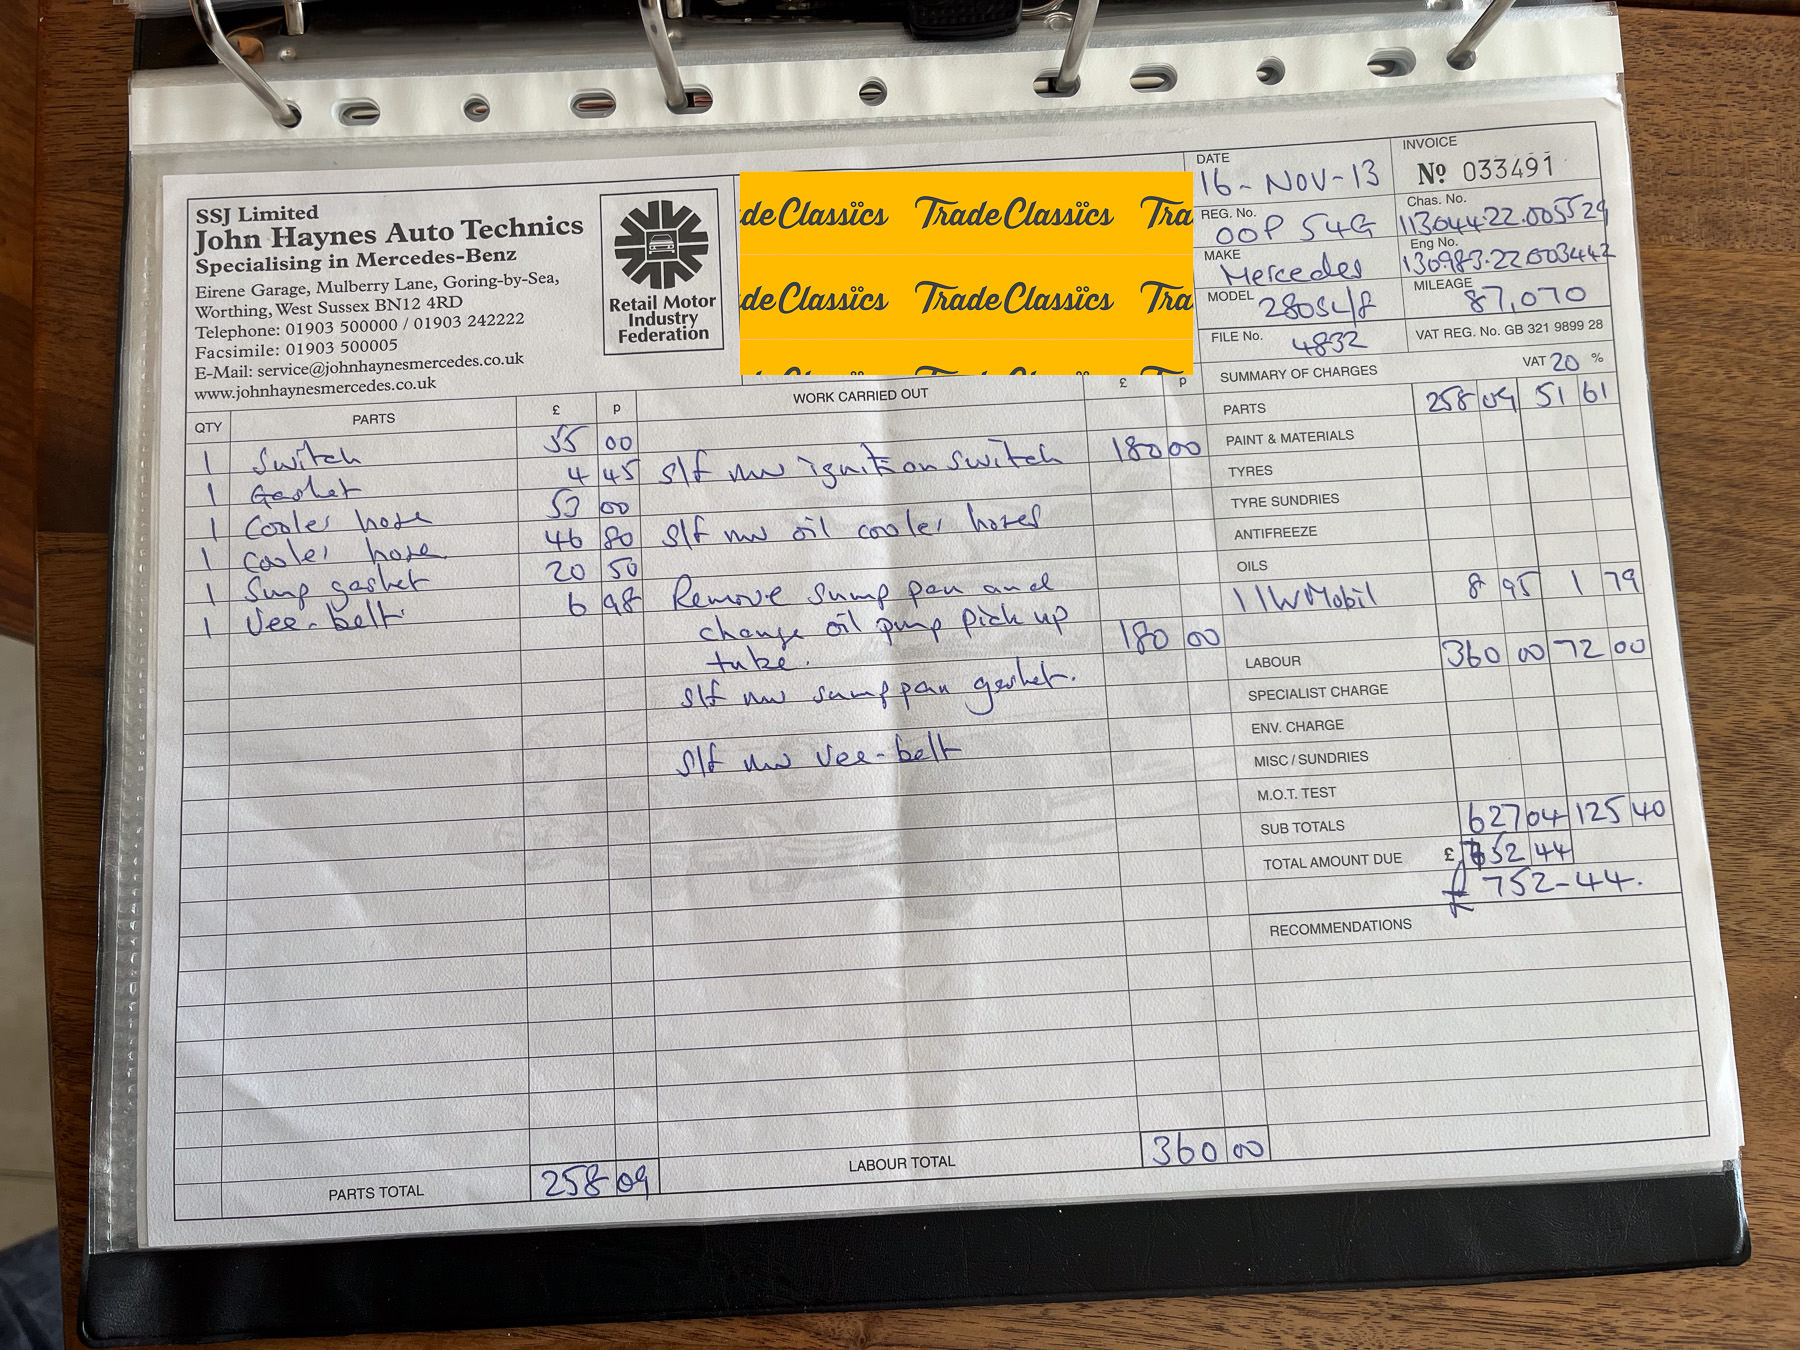 SSJ Limited
John Haynes Auto Technics
Specialising in Mercedes-Benz
Eirene Garage, Mulberry Lane, Goring-by-Sea,
Worthing, West Sussex BN12 4RD
Telephone: 01903 500000 / 01903 242222
Facsimile: 01903 500005
E-Mail: service@johnhaynesmercedes.co.uk
www.johnhaynesmercedes.co.uk
Retail Motor
Industry
Federation
de Classics Trade Classics Tra
de Classics Trade Classics Tra
DATE
16-NOV-13
INVOICE
No 033491
REG. No.
OOP 54G
Chas. No.
11304422.005529
MAKE
Mercedes
Eng No.
130983.22.003442
MODEL
280SL/8
MILEAGE
87,070
FILE No.
4832
VAT REG. No. GB 321 9899 28
QTY PARTS £ p WORK CARRIED OUT £ p
SUMMARY OF CHARGES VAT 20 %
1 Switch 55 00
1 Gasket 4 45
1 Cooler hose 53 00
1 Cooler hose 46 80
1 Sump gasket 20 50
1 Vee-belt 6 98
s/f nw ignition switch 180 00
s/f nw oil cooler hoses
Remove sump pan and
change oil pump pick up
tube. 180 00
s/f nw sump pan gasket.
s/f nw Vee-belt
PARTS 258 09 51 61
PAINT & MATERIALS
TYRES
TYRE SUNDRIES
ANTIFREEZE
OILS
Mobil 8 95 1 79
LABOUR 360 00 72 00
SPECIALIST CHARGE
ENV. CHARGE
MISC / SUNDRIES
M.O.T. TEST
SUB TOTALS 627 04 125 40
TOTAL AMOUNT DUE £ 752 44
£ 752-44.
RECOMMENDATIONS
PARTS TOTAL 258 09
LABOUR TOTAL 360 00